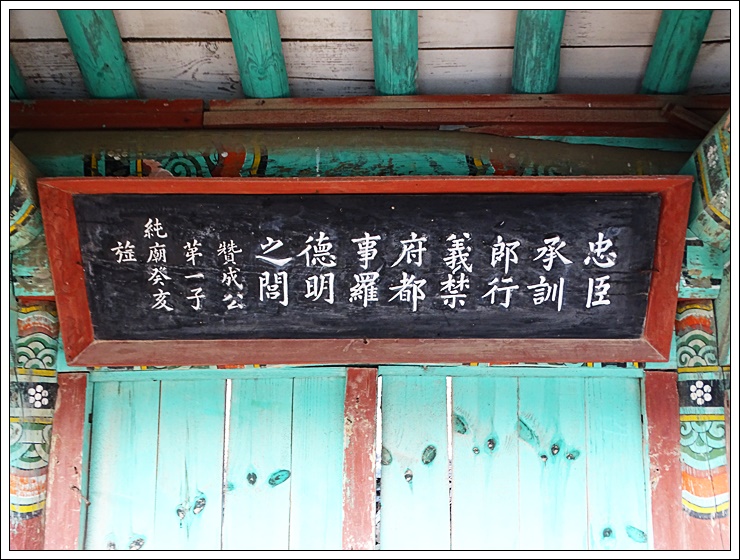 忠臣
承訓
郎行
義禁
府都
事羅
德明
之閭
贊成公
第一子
純廟癸亥
旌